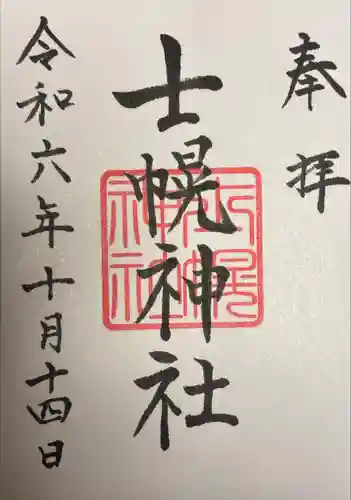 奉拝
士幌神社
令和六年十月十四日
士幌神社